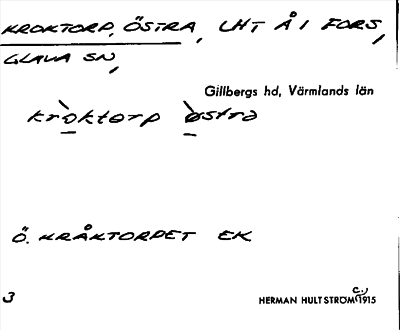 KROKTORP, ÖSTRA, LHT Å I FORS,
GLAVA SN,
Gillbergs hd, Värmlands län
kròktorp òstra
Ö. KRÅKTORPET EK
3 HERMAN HULTSTRÖM C:/1915